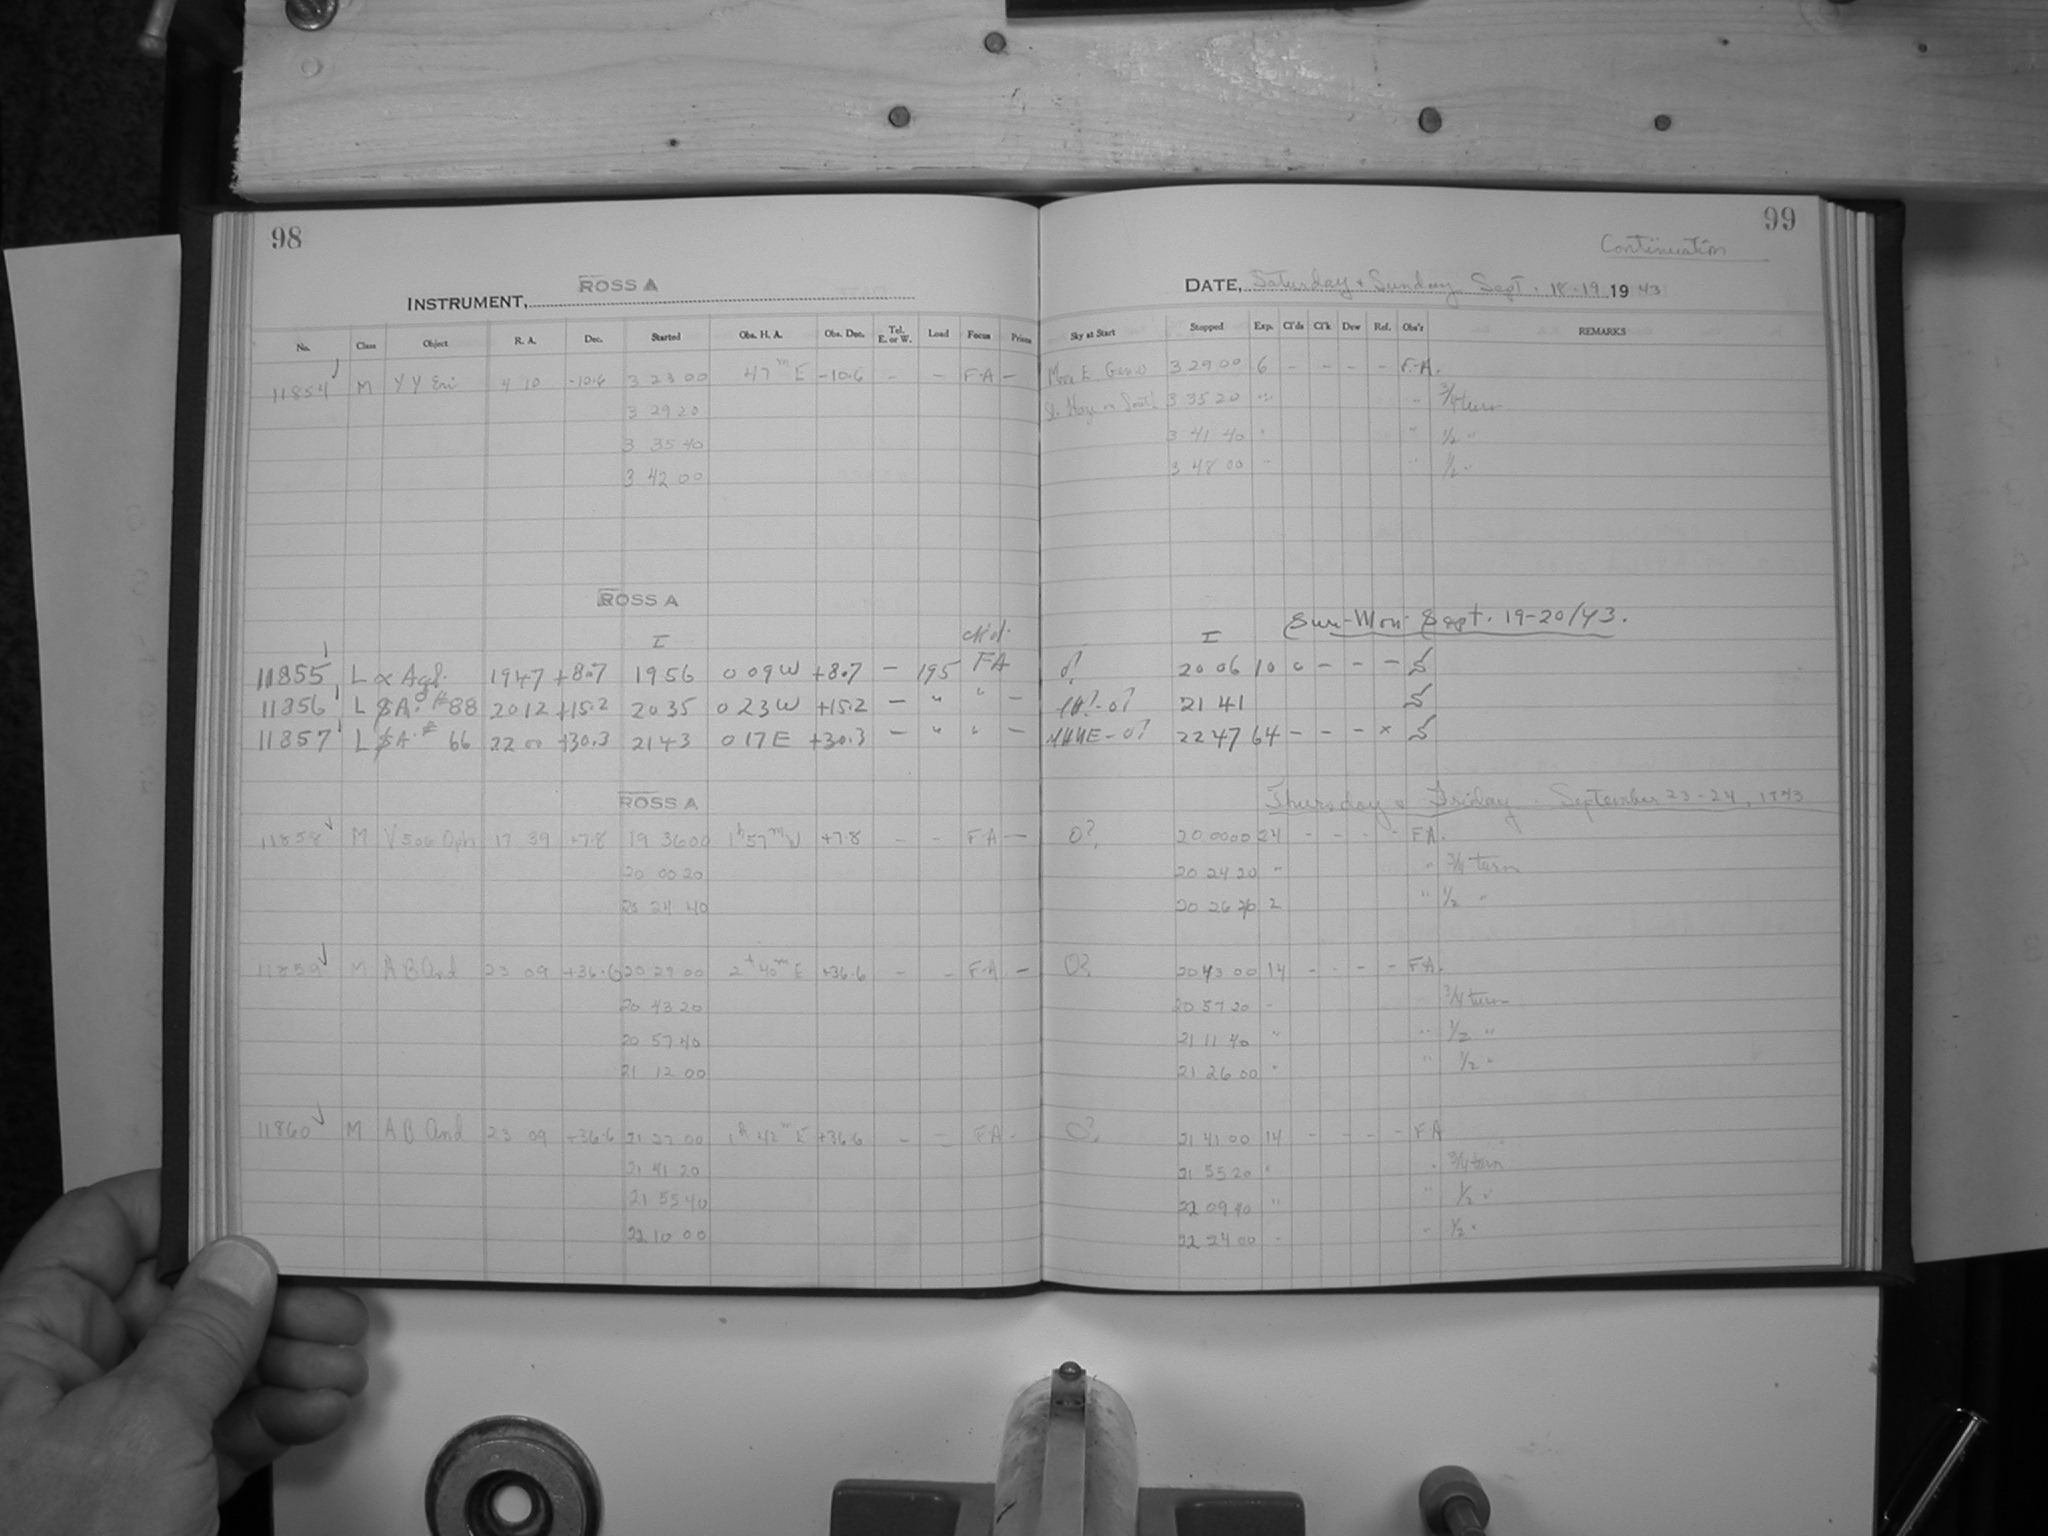 98
99
Continuation
ROSS A
INSTRUMENT,
DATE, Saturday + Sunday Sept. 18-19 1943
No. Class Object R. A. Dec. Started Obs. H. A. Obs. Dec. Tel. E. or W. Load Focus Prism Sky at Start Stopped Exp. Cl'ds Cl'k Dew Ref. Obs'r REMARKS
11854 M YY Eri 4 10 -10.6 3 23 00 47m E -10.6 - - FA - Moon E. 3 29 00 6 - - - - F.A.
3 29 20 Sl. Haze on South 3 35 20 " " 3/4 turn
3 35 40 3 41 40 " " 1/2 "
3 42 00 3 48 00 " " 1/2 "
ROSS A
Sun-Mon Sept. 19-20/43.
I I
11855 L α Aql. 1947 +8.7 1956 0 09 W +8.7 - 195 FA 0? 20 06 10 0 - - -
11856 L SA. #88 2012 +15.2 2035 0 23 W +15.2 - " " - 21 41
11857 L SA. # 66 22 00 +30.3 2143 0 17 E +30.3 - " " - 22 47 64 - - - x
ROSS A
Thursday & Friday. September 23-24, 1943
11858 M V506 Oph 17 39 +7.8 19 36 00 1h 57m W +7.8 - - FA - 0? 20 00 00 24 - - - - FA.
20 00 20 20 24 20 " " 3/4 turn
20 24 40 20 26 40 2 " 1/2 "
11859 M AB And 23 09 +36.6 20 29 00 2h 40m E +36.6 - - FA - 0? 20 43 00 14 - - - - FA.
20 43 20 20 57 20 " 3/4 turn
20 57 40 21 11 40 " " 1/2 "
21 12 00 21 26 00 " " 1/2 "
11860 M AB And 23 09 +36.6 21 27 00 1h 42m E +36.6 - - FA - 0? 21 41 00 14 - - - - FA
21 41 20 21 55 20 " " 3/4 turn
21 55 40 22 09 40 " " 1/2 "
22 10 00 22 24 00 " " 1/2 "